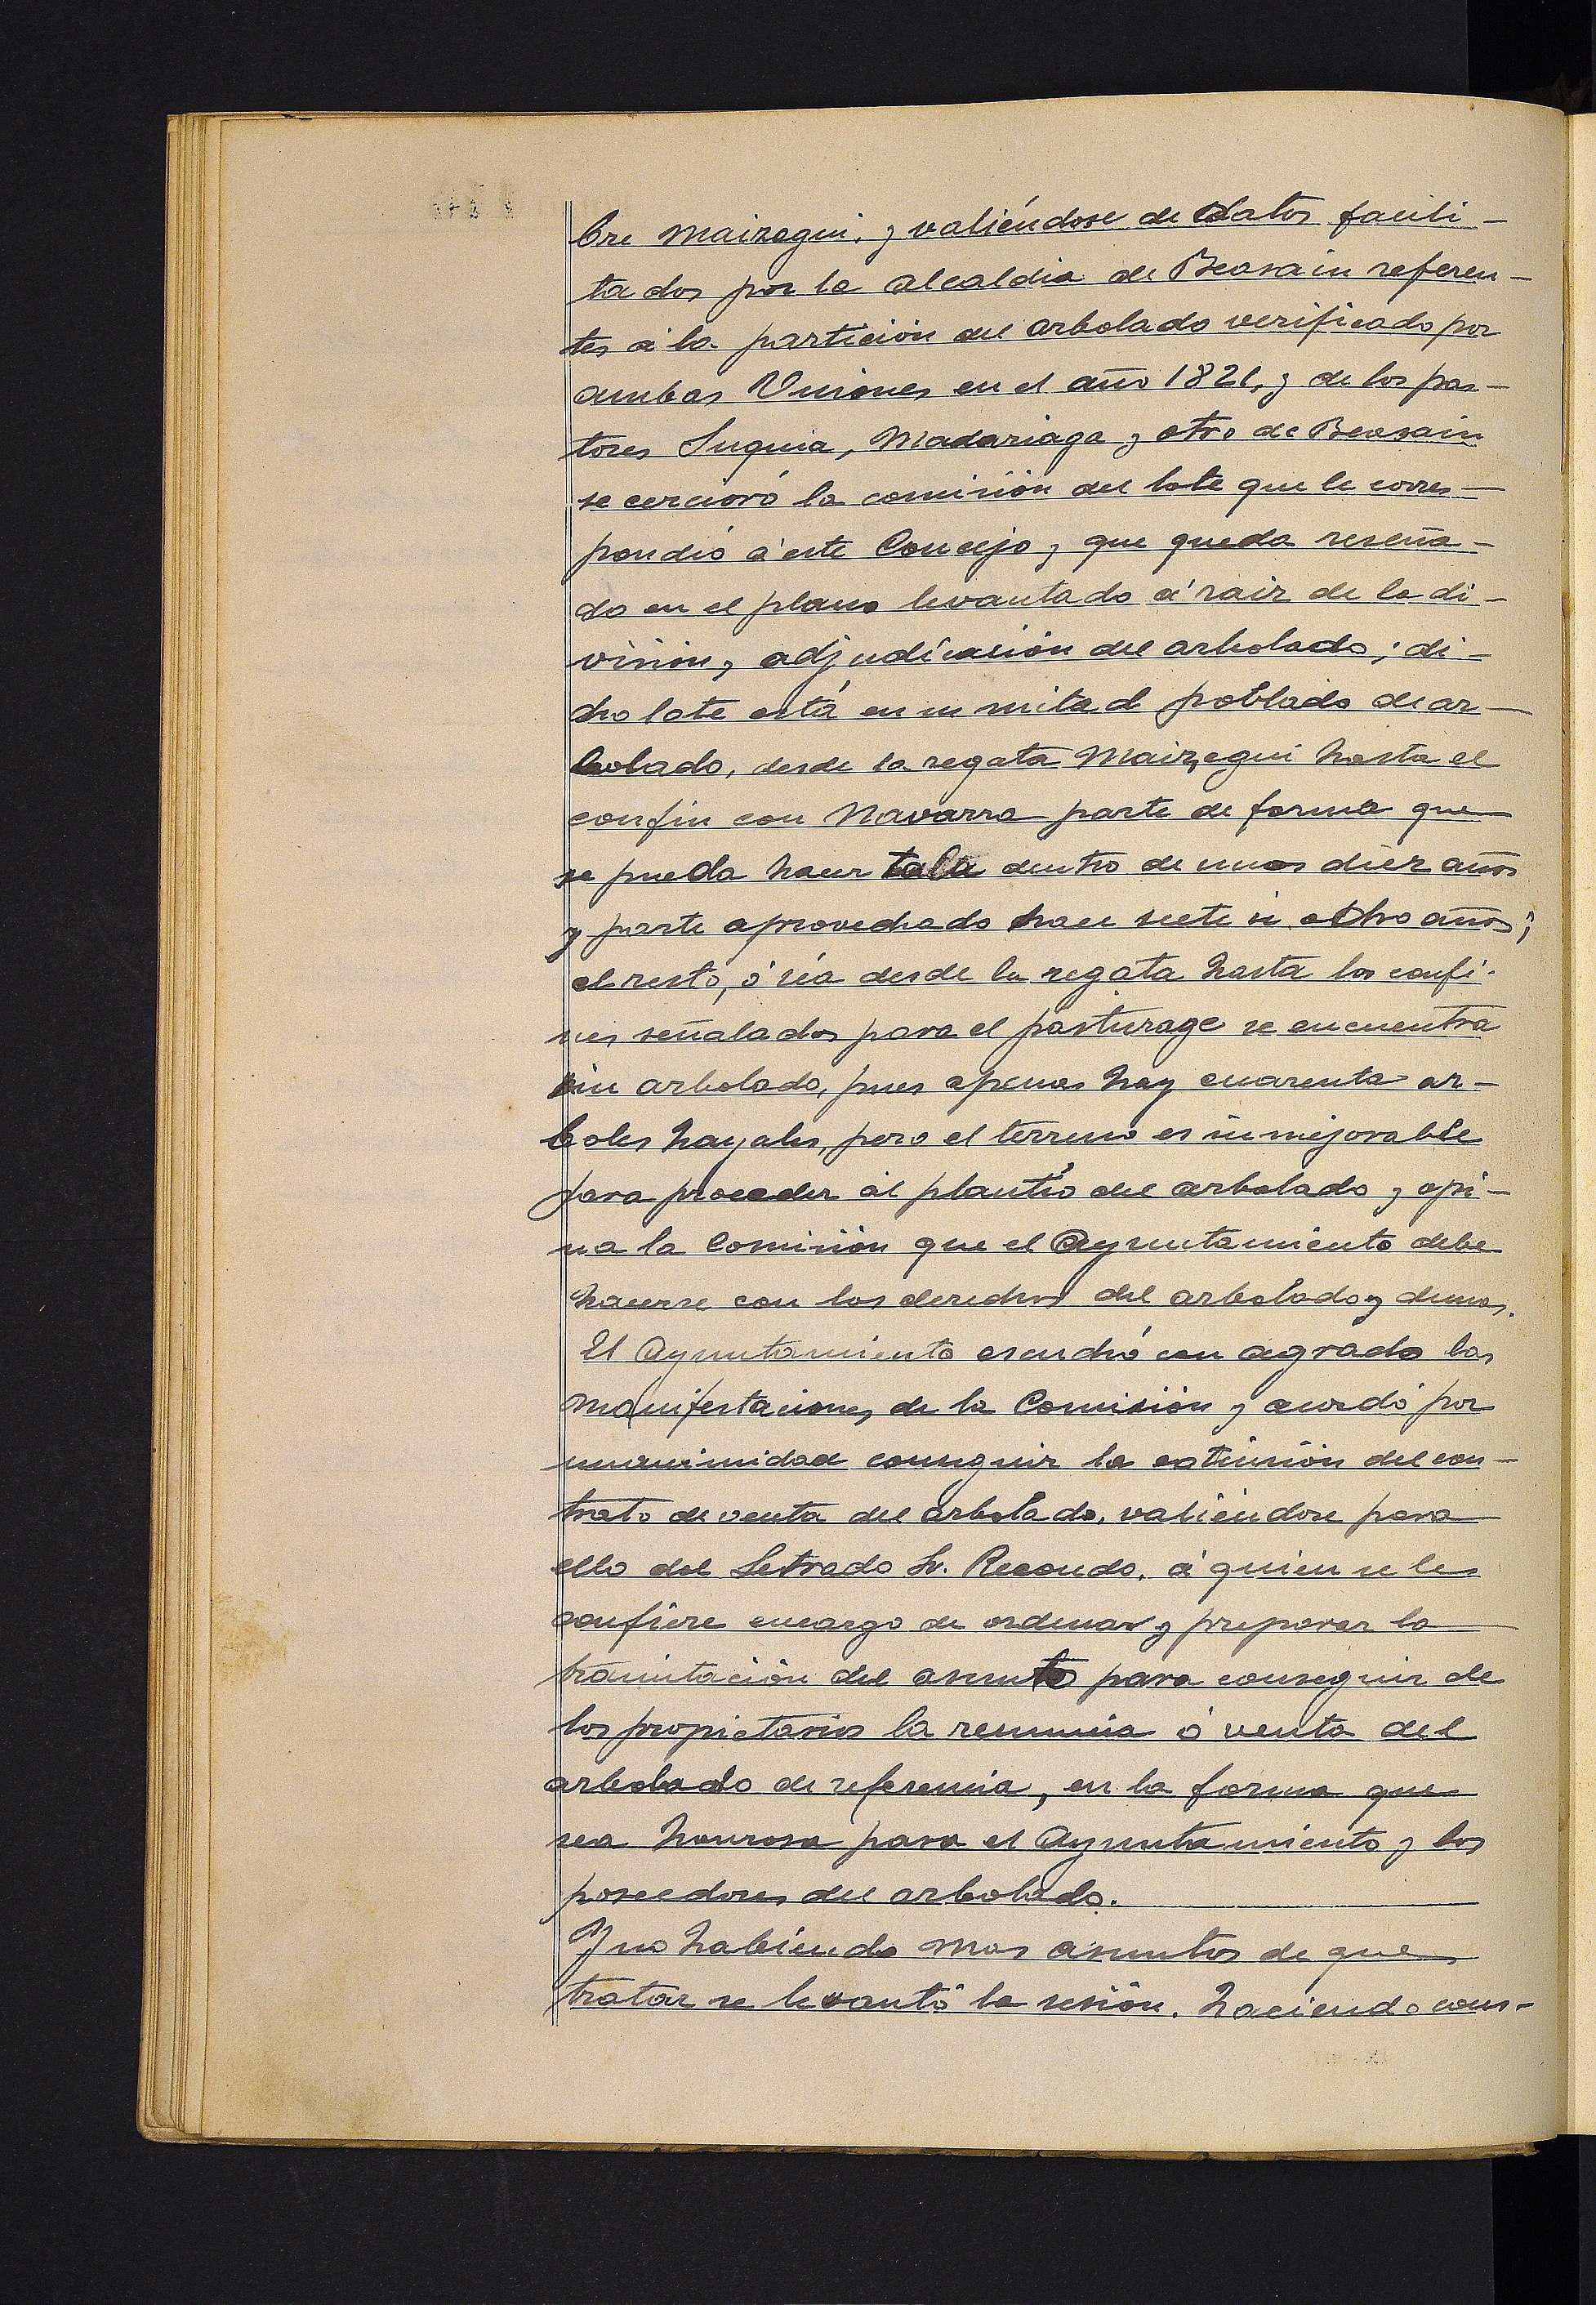 bre Maizegui, y valiéndose de datos facili-
tados por la alcaldia de Beasain referen-
tes á la partición del arbolado verificado por
ambas Uniones en el año 1821, y de los pas-
tores Suquia, Madariaga y otro de Beasain
se cercioró la comisión del lote que le corres-
pondió á este Concejo y que queda reseña-
do en el plano levantado á raiz de la di-
visión y adjudicación del arbolado; di-
cho lote está en su mitad poblado de ar-
bolado, desde la regata Maizegui hasta el
confin con Navarra parte de forma que
se pueda hacer tala dentro de unos diez años
y parte aprovechado hace siete ú ocho años;
el resto, ó sea desde la regata hasta los confi-
nes señalados para el pasturage se encuentra
sin arbolado, pues apenas hay cuarenta ar-
boles hayales, pero el terreno es inmejorable
para proceder al plantío del arbolado y opi-
na la Comisión que el Ayuntamiento debe
hacerse con los derechos del arbolado y demas.
El Ayuntamiento escuchó con agrado las
manifestaciones de la Comisión y acordó por
unanimidad conseguir la extinsión del con-
trato de venta del arbolado, valiéndose para
ello del Letrado Sr. Recondo, á quien se les
confiere encargo de ordenar y preparar la
tramitación del asunto para conseguir de
los propietarios la renuncia ó venta del
arbolado de referencia, en la forma que
sea honrosa para el Ayuntamiento y los
poseedores del arbolado.
Y no habiendo mas asuntos de que
tratar se levantó la sesión, haciendo cons-